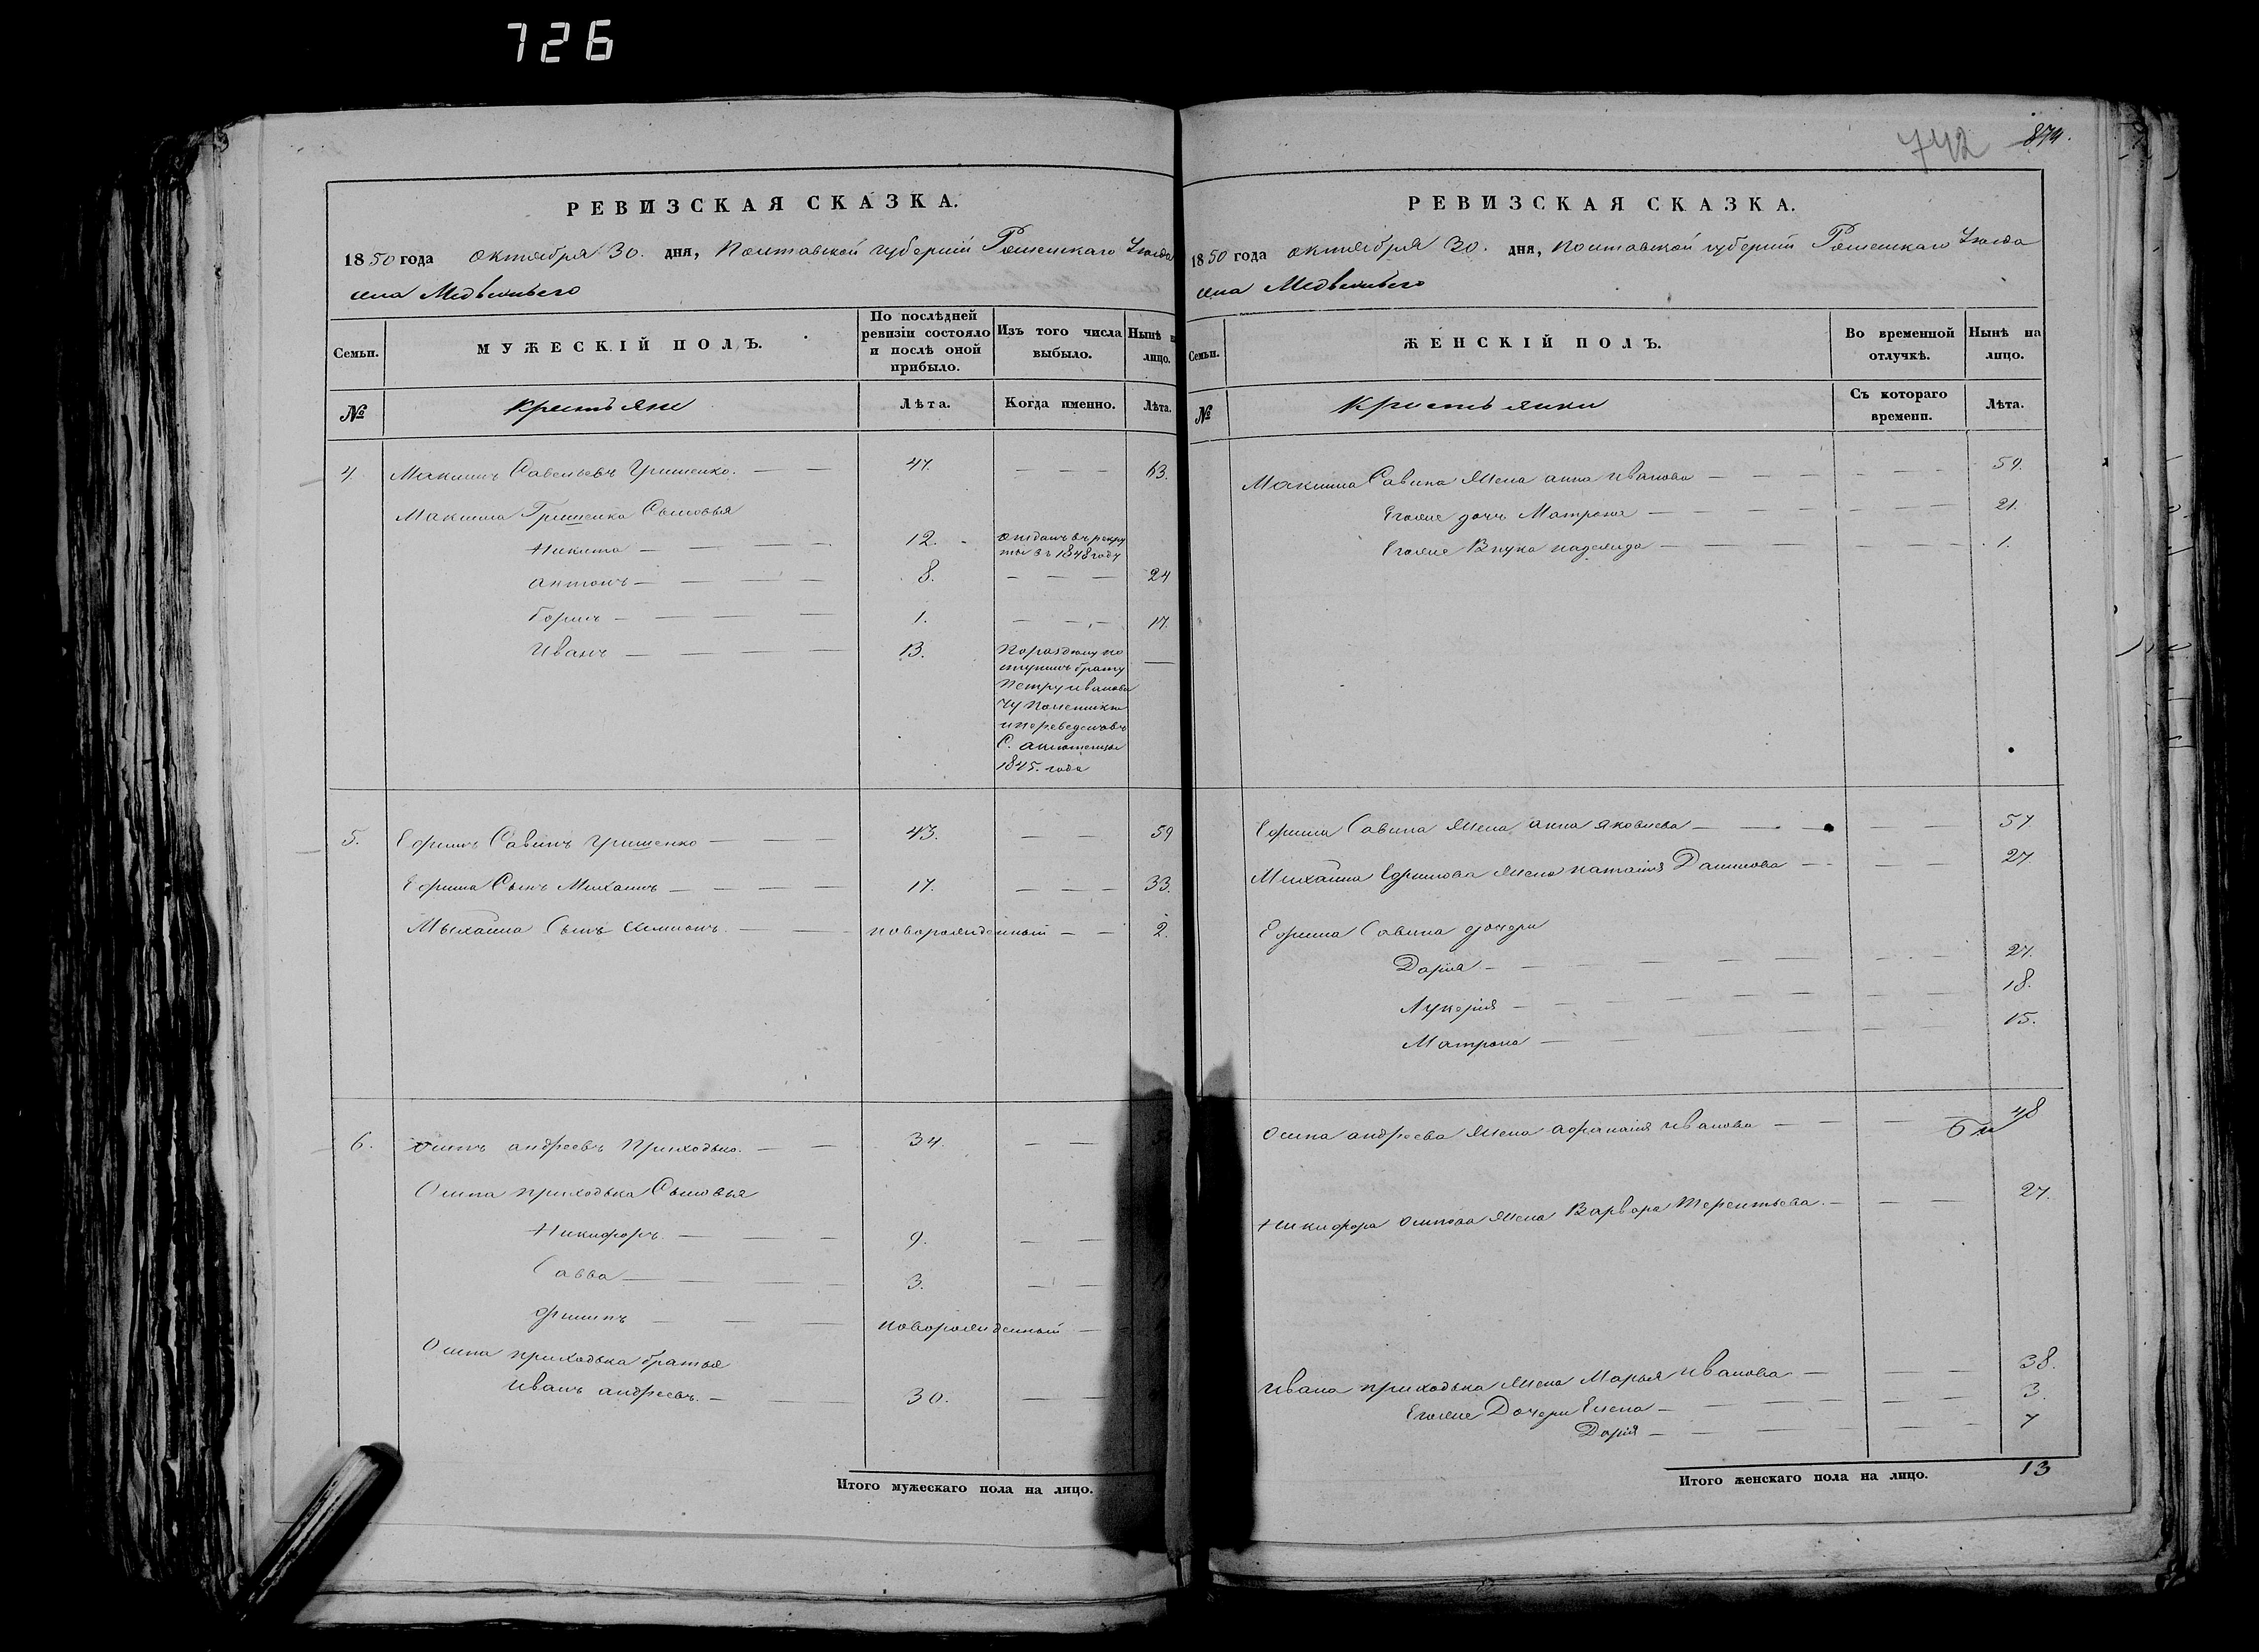 726
742 874.
РЕВИЗСКАЯ СКАЗКА.
1850 года октября 30. дня, Полтавской губерніи Роменскаго Уезда
села Медвежьего
Семьи.
МУЖЕСКІЙ ПОЛЪ.
По послѣдней ревизіи состояло и послѣ оной прибыло.
Изъ того числа выбыло.
Нынѣ н лицо.
№
Крестьяне
Лѣта.
Когда именно.
Лѣта.
4. Максимъ Савельевъ Гришенко. — — 47. — — — 63.
Максима Гришенка Сыновья
Никита — — — 12. отданъ въ рекру
ты въ 1848 году
Антонъ — — — 8. — — — 24
1. — — — 17.
Иванъ — — — 13. По раздѣлу по —
ступилъ брату
Петру Иванови
чу
и переведенъ въ
С.
1845. года
5. Ефимъ Савинъ Гришенко — — — 43. — — 59
Ефима Сынъ Михаилъ — — — — 17. — — — 33.
Михаила Сынъ Симионъ — — — новорожденный — — 2.
6. Осипъ Андреевъ Приходько. — — 34. — —
Осипа Приходька Сыновья
Никифоръ. — — — 9. — —
Савва — — — 3. — —
Филипъ — — — новорожденный —
Осипа Приходька братья
Иванъ Андреевъ. — — — 30. — —
Итого мужескаго пола на лицо.
РЕВИЗСКАЯ СКАЗКА.
1850 года октября 30. дня, Полтавской губерніи Роменскаго Уезда
села Медвежьего
Семьи.
ЖЕНСКІЙ ПОЛЪ.
Во временной отлучкѣ.
Нынѣ на лицо.
№
Крестьянки
Съ котораго времени.
Лѣта.
Максима Савина жена Анна Иванова — — — 59.
Егоже дочь Матрона — — — 21.
Егоже Внука Надежда — — — 1.
Ефима Савина жена Анна Яковлева — — — 57
Михаила Ефимова жена Наталія Данилова — — — 27
Ефима Савина дочери
Дарія — — — 27.
Лукерія — — — 18.
Матрона — — — 15.
Осипа Андреева жена Афанасія Иванова — — — 48
Никифора Осипова жена Варвара Терентьева. — — — 27.
Ивана Приходька жена Марья Иванова — — — 38.
Егоже Дочери Елена — — — 3.
Дарія — — — 7
Итого женскаго пола на лицо. 13